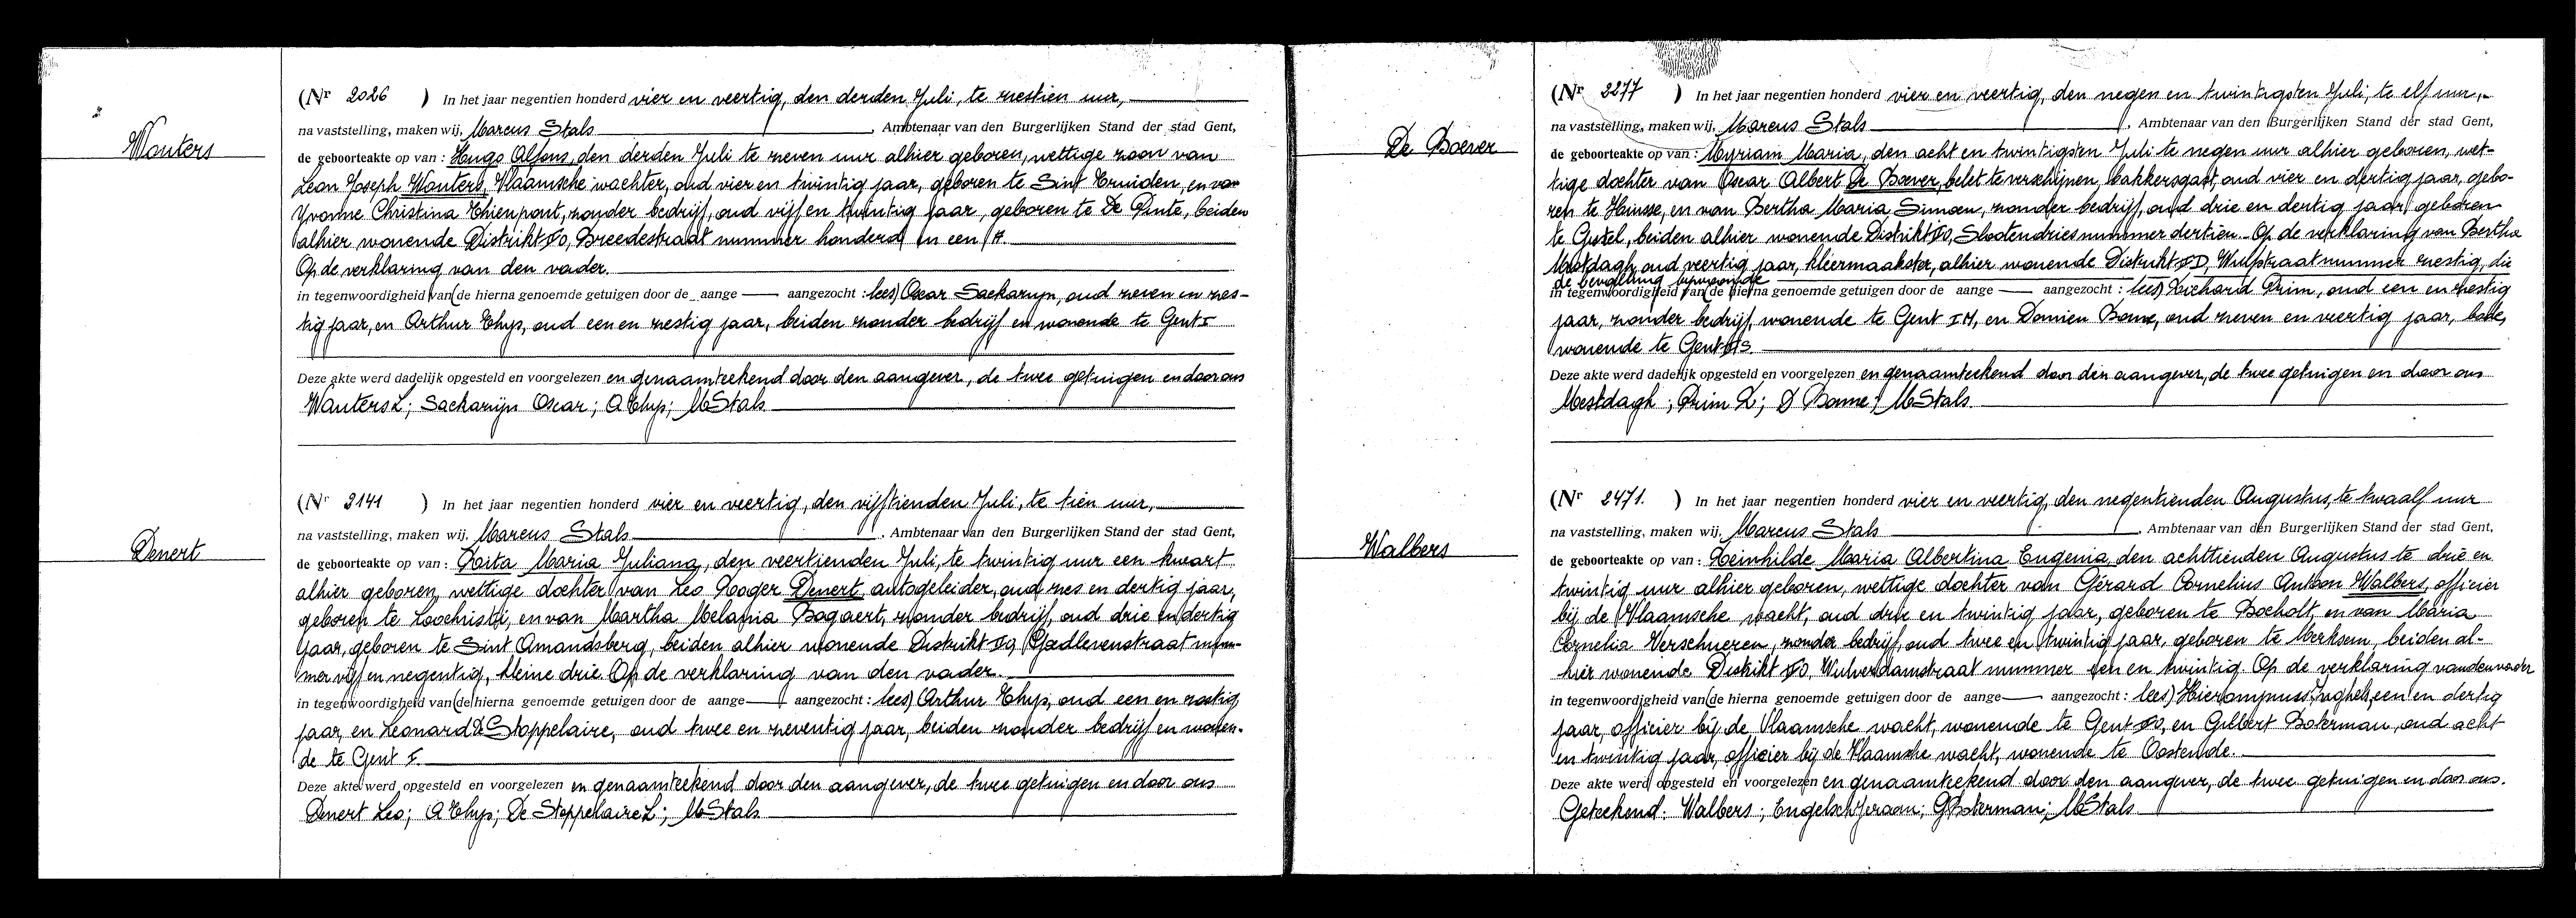 Wouters
(Nr 2026 ) In het jaar negentien honderd vier en veertig, den derden Juli, te zestien uur,
na vaststelling, maken wij, Marcus Stals, Ambtenaar van den Burgerlijken Stand der stad Gent,
de geboorteakte op van : Hugo Alfons, den derden Juli te zeven uur alhier geboren, wettige zoon van
Leon Joseph Wouters, Vlaamsche wachter, oud vier en twintig jaar, geboren te Sint Truiden, en van
Yvonne Christina Thienpont, zonder bedrijf, oud vijf en twintig jaar, geboren te De Pinte, beiden
alhier wonende Distrikt Breedestraat nummer honderd en een
Op de verklaring van den vader.
in tegenwoordigheid van (de hierna genoemde getuigen door de aange aangezocht : lees) Oscar Sackarijn, oud zeven en zes-
tig jaar, en Arthur Thys, oud een en zestig jaar, beiden zonder bedrijf en wonende te Gent I
Deze akte werd dadelijk opgesteld en voorgelezen en genaamteekend door den aangever, de twee getuigen en door ons
Wouters L; Sackarijn Oscar; A Thys; MStals
Denert
(Nr 2141 ) In het jaar negentien honderd vier en veertig, den vijftienden Juli, te tien uur,
na vaststelling, maken wij, Marcus Stals, Ambtenaar van den Burgerlijken Stand der stad Gent,
de geboorteakte op van : Rita Maria Juliana, den veertienden Juli, te twintig uur een kwart
alhier geboren, wettige dochter van Leo Rogger Denert, autogeleider, oud zes en dertig jaar,
geboren te Loochristi, en van Martha Melania Bogaert, zonder bedrijf, oud drie en dertig
jaar, geboren te Sint Amandsberg, beiden alhier wonende Distrikt num-
mer vijf en negentig, kleine drie. Op de verklaring van den vader.
in tegenwoordigheid van (de hierna genoemde getuigen door de aange aangezocht : lees) Arthur Thys, oud een en zestig
jaar, en Leonard De Stoppelaire, oud twee en zeventig jaar, beiden zonder bedrijf en wonen-
de te Gent I.
Deze akte werd opgesteld en voorgelezen en genaamteekend door den aangever, de twee getuigen en door ons
Denert Leo; A Thys; De Stoppelaire L; MStals
De Boever
(Nr 2277 ) In het jaar negentien honderd vier en veertig, den negen en twintigsten Juli, te elf uur,
na vaststelling, maken wij, Marcus Stals, Ambtenaar van den Burgerlijken Stand der stad Gent,
de geboorteakte op van : Myriam Maria, den acht en twintigsten Juli te negen uur alhier geboren, wet-
tige dochter van Oscar Albert De Boever, belet te verschijnen, bakkersgast, oud vier en dertig jaar, gebo-
ren te Hansse, en van Bertha Maria Simoen, zonder bedrijf, oud drie en dertig jaar, geboren
te Gistel, beiden alhier wonende Distrikt Slootendries nummer dertien. Op de verklaring van Bertha
Mestdagh, oud veertig jaar, kleermaakster, alhier wonende Distrikt Wulpstraat nummer zestig, die
de bevalling bijwoonde
in tegenwoordigheid van (de hierna genoemde getuigen door de aange aangezocht : lees) Richard Prim, oud een en zestig
jaar, zonder bedrijf, wonende te Gent en Damien Bonne, oud zeven en veertig jaar, bode,
wonende te Gent
Deze akte werd dadelijk opgesteld en voorgelezen en genaamteekend door den aangever, de twee getuigen en door ons
Mestdagh; Prim R; D Bonne; MStals
Walbers
(Nr 2471. ) In het jaar negentien honderd vier en veertig, den negentienden Augustus, te twaalf uur
na vaststelling, maken wij, Marcus Stals, Ambtenaar van den Burgerlijken Stand der stad Gent,
de geboorteakte op van : Reinhilde Maria Albertina Eugenia, den achttienden Augustus te drie en
twintig uur alhier geboren, wettige dochter van Gérard Cornelius Antoon Walbers, officier
bij de Vlaamsche wacht, oud drie en twintig jaar, geboren te Bocholt, en van Maria
Cornelia Verschueren, zonder bedrijf, oud twee en twintig jaar, geboren te Merksem, beiden al-
hier wonende Distrikt Wulverdamstraat nummer een en twintig. Op de verklaring van den vader
in tegenwoordigheid van (de hierna genoemde getuigen door de aange aangezocht : lees) een en dertig
jaar, officier bij de Vlaamsche wacht, wonende te Gent en Gilbert Boterman, oud acht
en twintig jaar, officier bij de Vlaamsche wacht, wonende te Oostende.
Deze akte werd opgesteld en voorgelezen en genaamteekend door den aangever, de twee getuigen en door ons.
Geteekend: Walbers; GBoterman; MStals